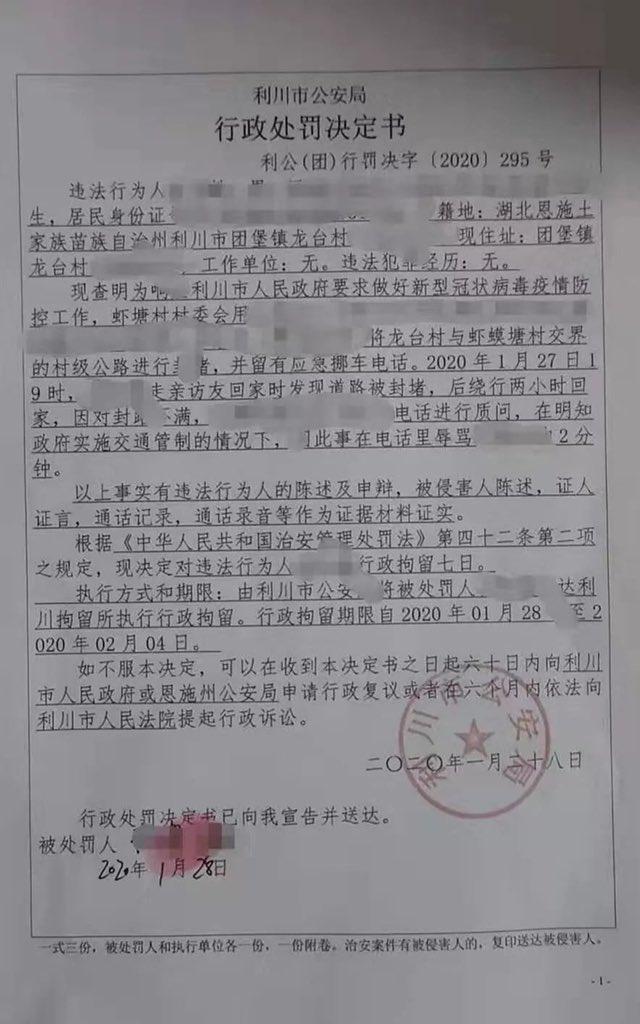 利川市公安局
行政处罚决定书
利公(团)行罚决字〔2020〕295号
违法行为人
生，居民身份证 籍地：湖北恩施土
家族苗族自治州利川市团堡镇龙台村 现住址：团堡镇
龙台村 ，工作单位：无。违法犯罪经历：无。
现查明为响 利川市人民政府要求做好新型冠状病毒疫情防
控工作，虾塘村村委会用
将龙台村与虾蟆塘村交界
的村级公路进行封堵，并留有应急挪车电话。2020年1月27日1
9时， 走亲访友回家时发现道路被封堵，后绕行两小时回
家，因对封 不满， 电话进行质问，在明知
政府实施交通管制的情况下， 此事在电话里辱骂 2分
钟。
以上事实有违法行为人的陈述及申辩，被侵害人陈述，证人
证言，通话记录，通话录音等作为证据材料证实。
根据《中华人民共和国治安管理处罚法》第四十二条第二项
之规定，现决定对违法行为人 行政拘留七日。
执行方式和期限：由利川市公安 将被处罚人 达利
川拘留所执行行政拘留。行政拘留期限自2020年01月28 至2
020年02月04日。
如不服本决定，可以在收到本决定书之日起六十日内向利川
市人民政府或恩施州公安局申请行政复议或者在六个月内依法向
利川市人民法院提起行政诉讼。
利川市公安局
二〇二〇年一月二十八日
行政处罚决定书已向我宣告并送达。
被处罚人
2020年1月28日
一式三份，被处罚人和执行单位各一份，一份附卷。治安案件有被侵害人的，复印送达被侵害人。
-1-